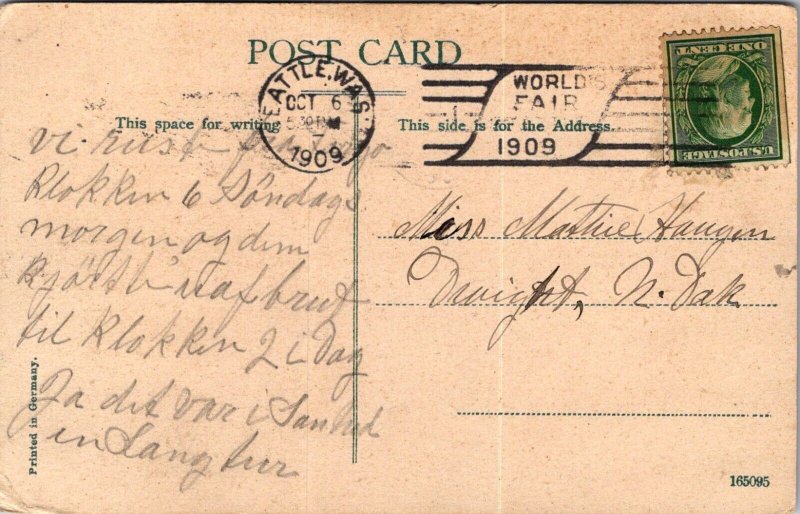 POST CARD
SEATTLE, WASH.
OCT 6
5 30 PM
1909
WORLD'S
FAIR
1909
U.S. POSTAGE
ONE CENT
This space for writing
This side is for the Address.
vi reiste fra
Klokken 6 Söndags
morgen og dem
kjörte uafbrut
til Klokken 2 i Dag
Ja det var i Sanhed
en Lang tur
Miss Mathie Haugen
Dwight, N. Dak
Printed in Germany.
165095